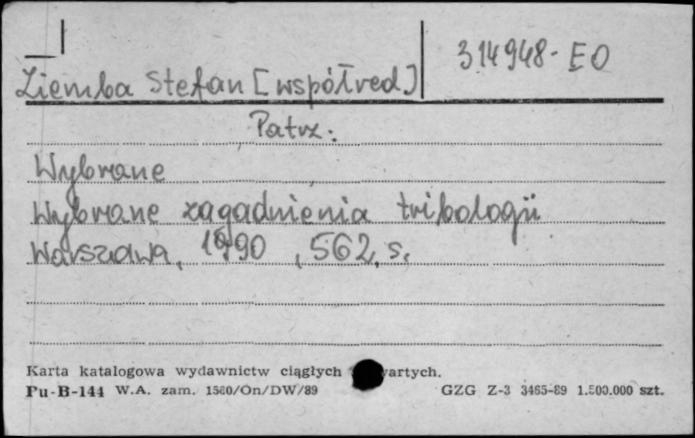 314948-EO
Ziemba Stefan [współred]
Patrz:
Wybrane
Wybrane zagadnienia tribologii
Warszawa, 1990, 562, s.
Karta katalogowa wydawnictw ciągłych
Pu-B-144 W.A. zam. 1560/On/DW/89 GZG Z-3 3465-89 1.500.000 szt.